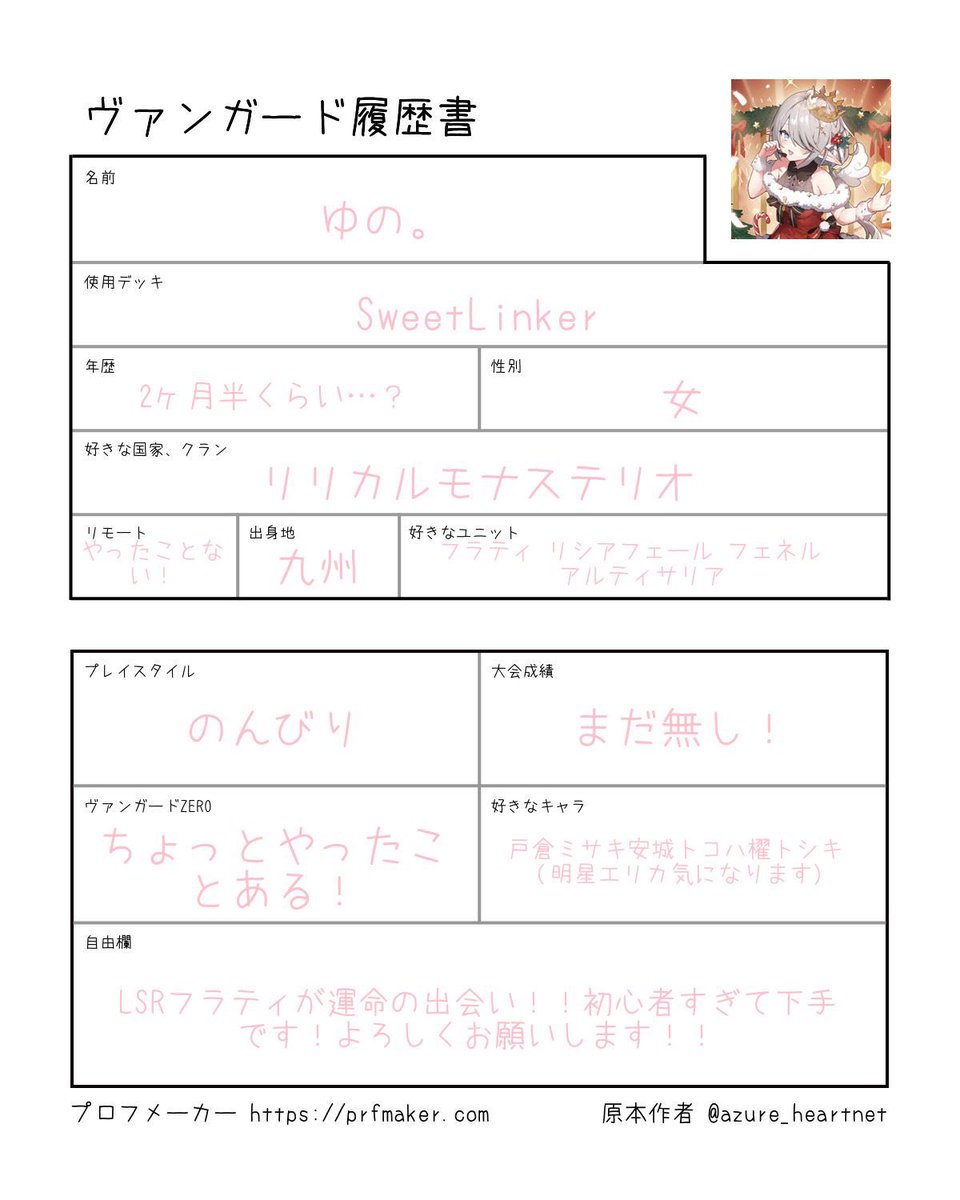 ヴァンガード履歴書
名前
ゆの。
使用デッキ
SweetLinker
年歴
2ヶ月半くらい…？
性別
女
好きな国家、クラン
リリカルモナステリオ
リモート
やったことな
い！
出身地
九州
好きなユニット
フラティ リシアフェール フェネル
アルティサリア
プレイスタイル
のんびり
大会成績
まだ無し！
ヴァンガードZERO
ちょっとやったこ
とある！
好きなキャラ
戸倉ミサキ安城トコハ櫂トシキ
(明星エリカ気になります)
自由欄
LSRフラティが運命の出会い！！初心者すぎて下手
です！よろしくお願いします！！
プロフメーカー https://prfmaker.com
原本作者 @azure_heartnet